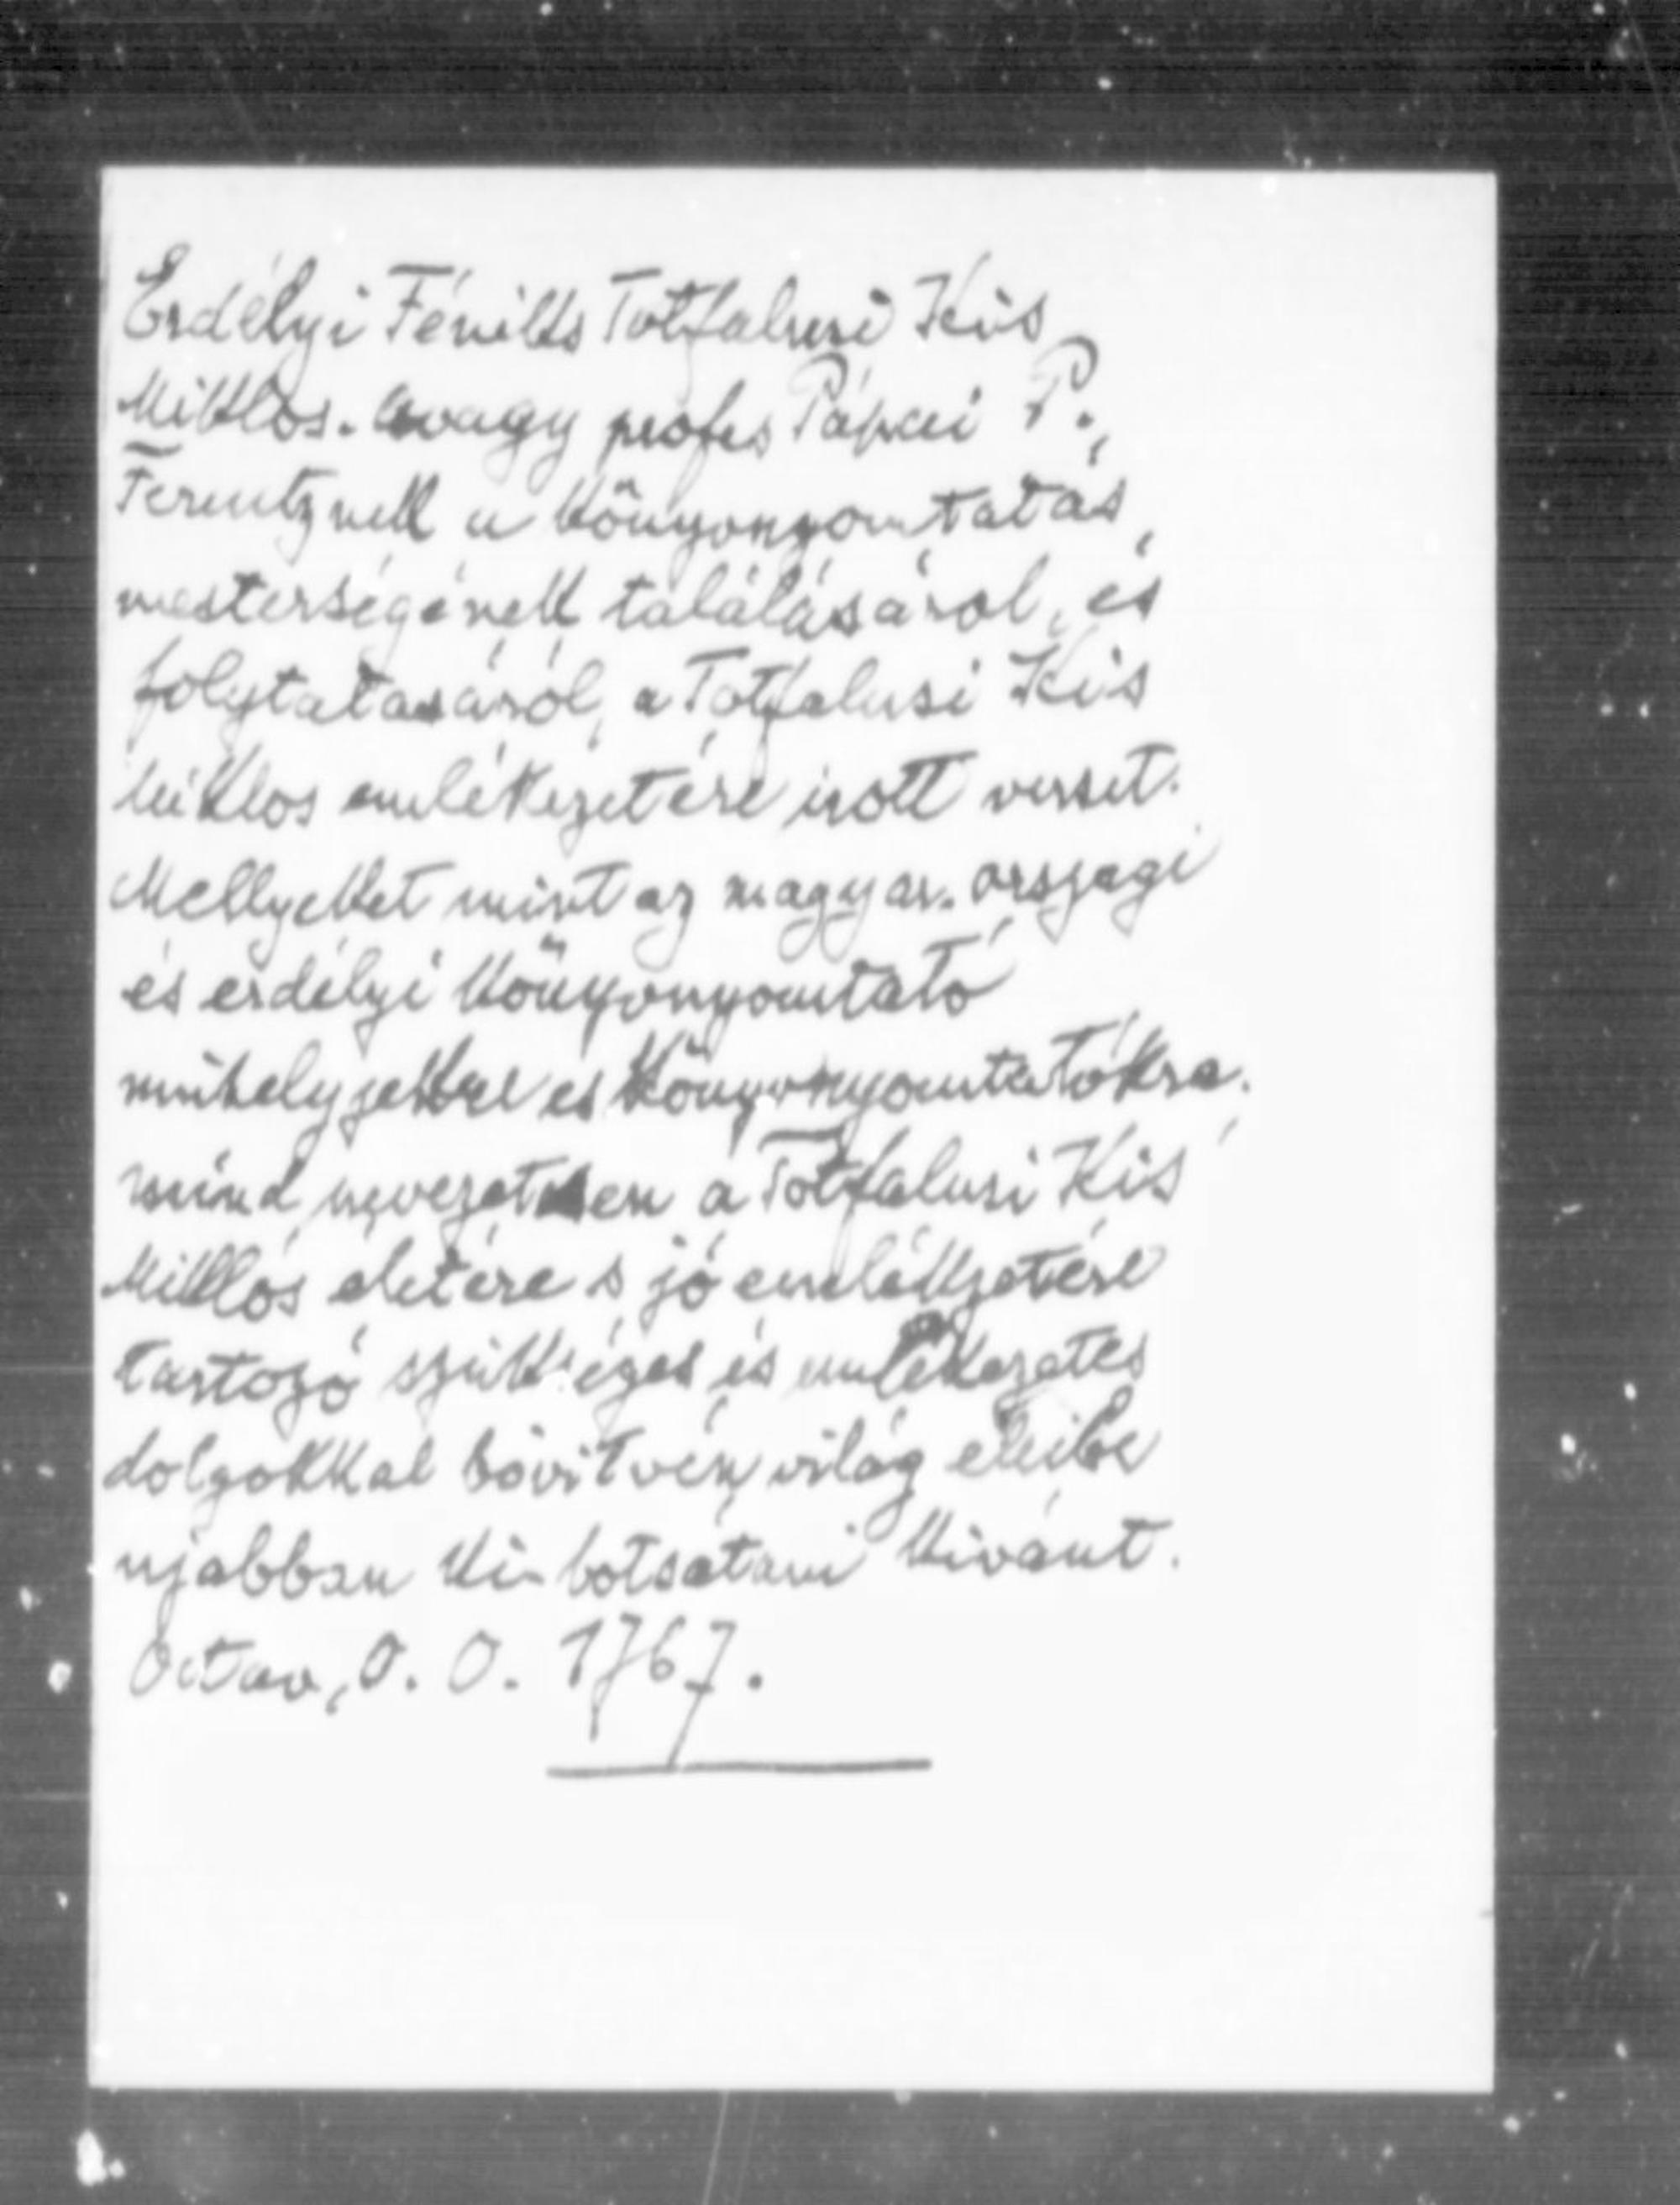 Erdélyi Féniks Totfalusi Kis
Miklos. avagy profes Pápai P.
Ferentznek a Könyvnyomtatás
mesterségének találásárol, és
folytatasáról, a Totfalusi Kis
Miklos emlékezetére irott verset.
Mellyeket mint az magyar. orszagi
és erdélyi könyvnyomtató
mühelyjekkel es Könyvnyomtatókra.
mind nevezetesen a Tótfalusi Kis
Miklós életére s jó emlékezetére
tartozó szükséges és emlékezetes
dolgokkal bövitvén világ eleibe
ujabban ki-botsátani kivánt.
Octav, O. O. 1767.